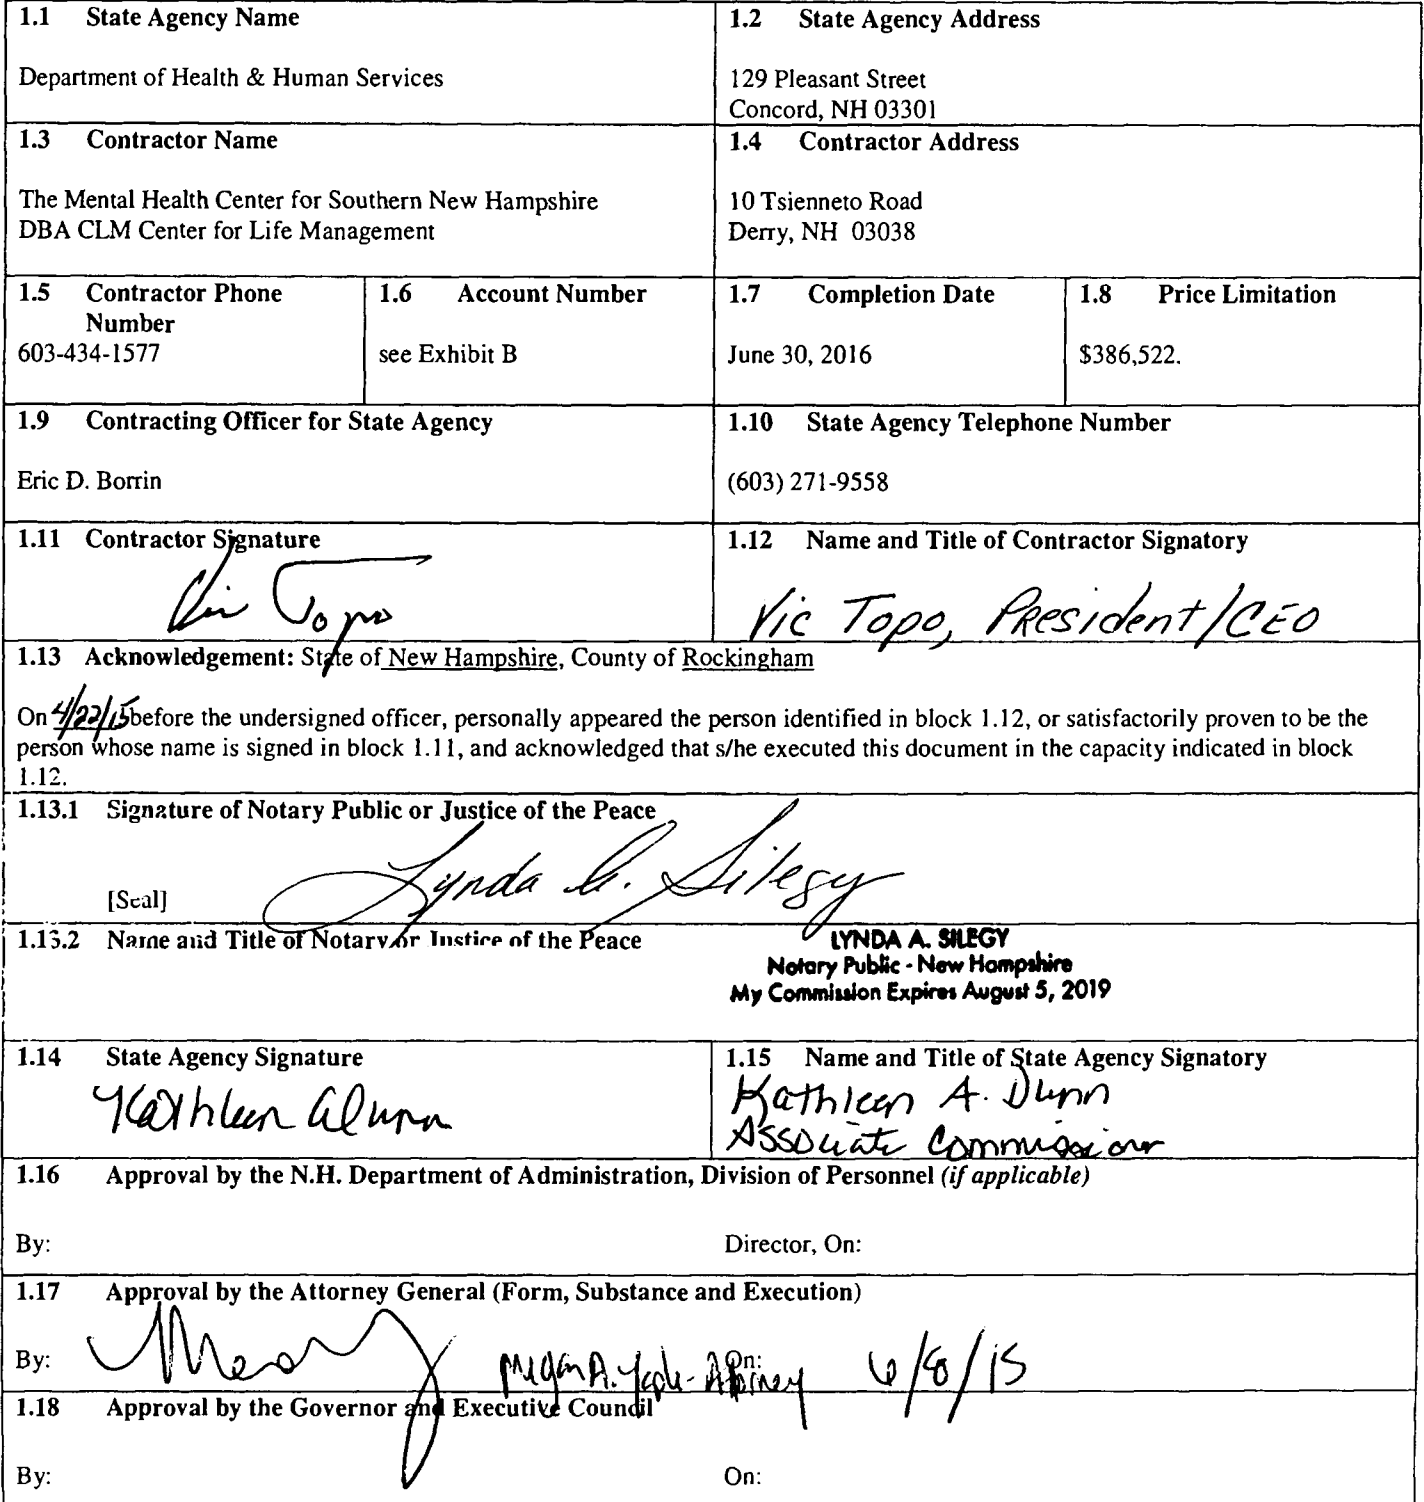 1.1 State Agency Name
1.2 State Agency Address
Department of Health & Human Services
129 Pleasant Street
Concord, NH 03301
1.3 Contractor Name
1.4 Contractor Address
The Mental Health Center for Southern New Hampshire
DBA CLM Center for Life Management
10 Tsienneto Road
Derry, NH 03038
1.5 Contractor Phone
Number
603-434-1577
1.6 Account Number
see Exhibit B
1.7 Completion Date
June 30, 2016
1.8 Price Limitation
$386,522.
1.9 Contracting Officer for State Agency
Eric D. Borrin
1.10 State Agency Telephone Number
(603) 271-9558
1.11 Contractor Signature
Vic Topo
1.12 Name and Title of Contractor Signatory
Vic Topo, President/CEO
1.13 Acknowledgement: State of New Hampshire, County of Rockingham
On 4/22/15 before the undersigned officer, personally appeared the person identified in block 1.12, or satisfactorily proven to be the
person whose name is signed in block 1.11, and acknowledged that s/he executed this document in the capacity indicated in block
1.12.
1.13.1 Signature of Notary Public or Justice of the Peace
Lynda A. Silegy
[Seal]
1.13.2 Name and Title of Notary or Justice of the Peace
LYNDA A. SILEGY
Notary Public - New Hampshire
My Commission Expires August 5, 2019
1.14 State Agency Signature
Kathleen A Dunn
1.15 Name and Title of State Agency Signatory
Kathleen A. Dunn
Associate Commissioner
1.16 Approval by the N.H. Department of Administration, Division of Personnel (if applicable)
By:
Director, On:
1.17 Approval by the Attorney General (Form, Substance and Execution)
By:
Megan A. - Attorney
On: 6/8/15
1.18 Approval by the Governor and Executive Council
By:
On: